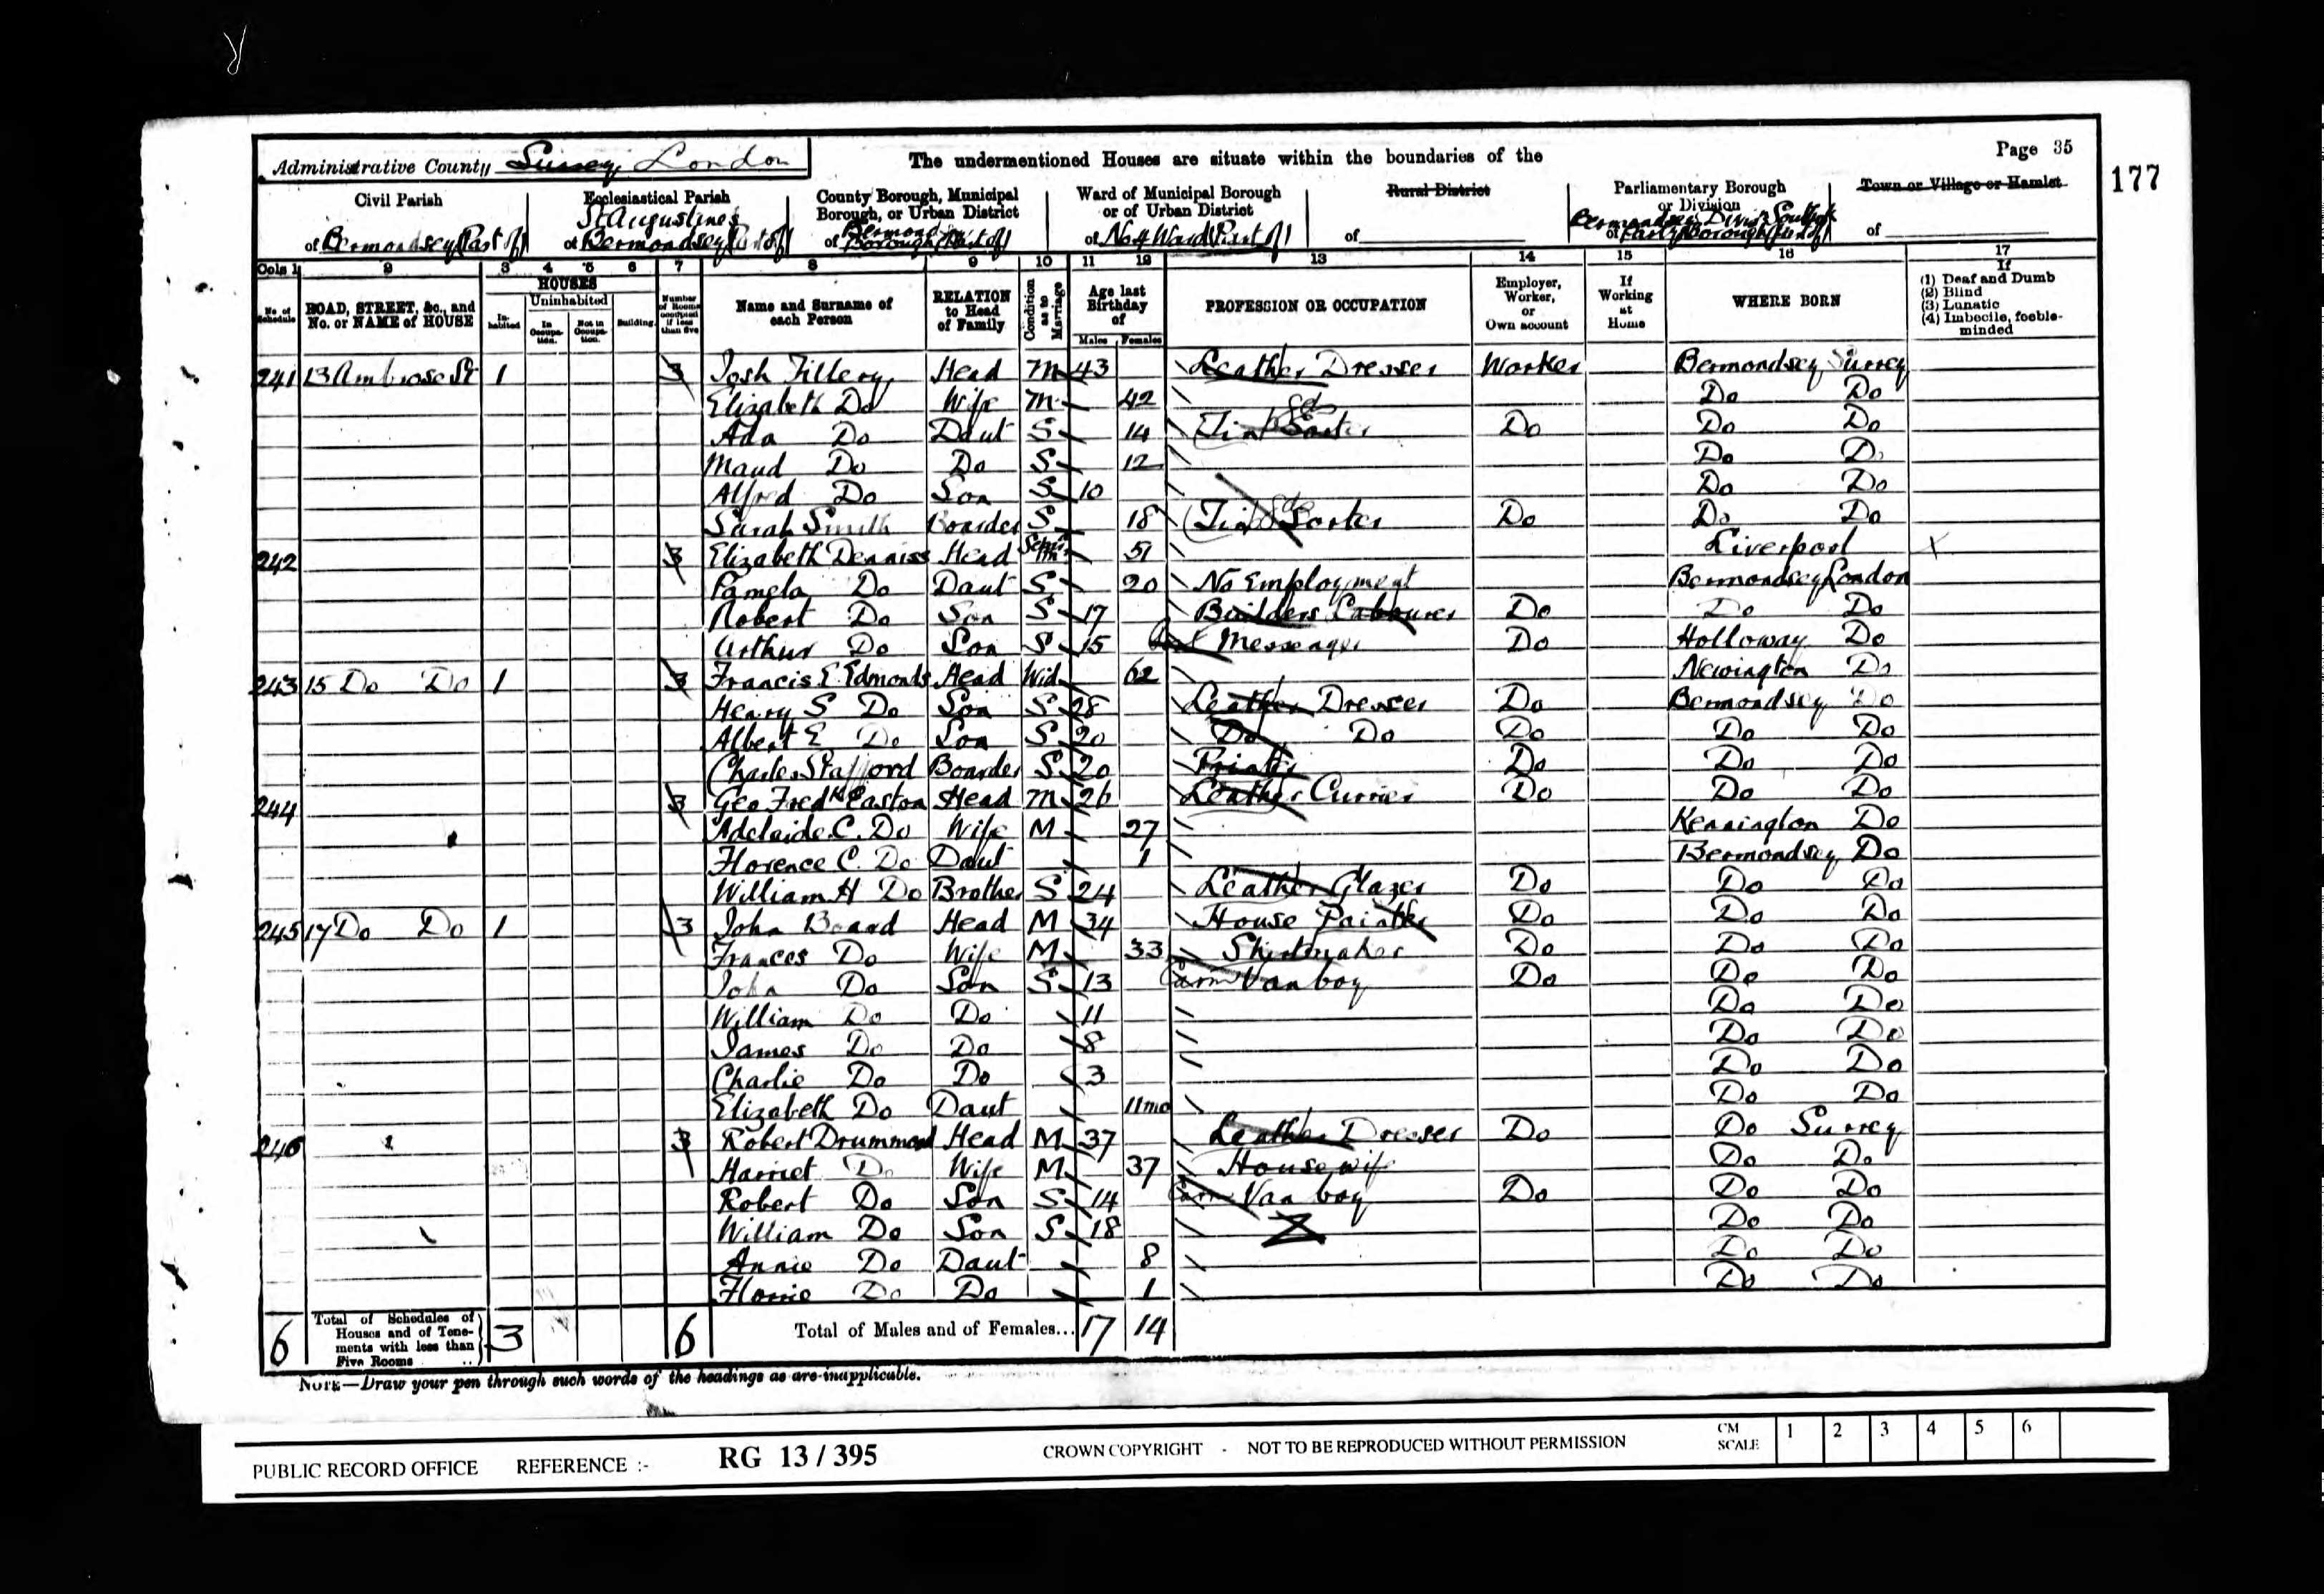 Administrative County Surrey London
The undermentioned Houses are situate within the boundaries of the
Page 35
177
Civil Parish
of Bermondsey (Part of)
Ecclesiastical Parish
St Augustines
of Bermondsey (Part of)
County Borough, Municipal
Borough, or Urban District
of Borough (Part of)
Ward of Municipal Borough
or of Urban District
of No 4 Ward (Part of)
Rural District
of
Parliamentary Borough
or Division
of
Town or Village or Hamlet
of
Cols 1 2 3 4 5 6 7 8 9 10 11 12 13 14 15 16 17
No. of Schedule
ROAD, STREET, &c., and No. or NAME of HOUSE
HOUSES
In-habited
Uninhabited
In Occupa-tion.
Not in Occupa-tion.
Building.
Number of Rooms occupied if less than five
Name and Surname of each Person
RELATION to Head of Family
Condition as to Marriage
Age last Birthday of
Males Females
PROFESSION OR OCCUPATION
Employer, Worker, or Own account
If Working at Home
WHERE BORN
If
(1) Deaf and Dumb
(2) Blind
(3) Lunatic
(4) Imbecile, feeble-minded
241 13 Ambrose St 1 3 Josh Tillery Head M 43 Leather Dresser Worker Bermondsey Surrey
Elizabeth Do Wife M 42 Do Do
Ada Do Daut S 14 Tin Sorter Do Do Do
Maud Do Do S 12 Do Do
Alfred Do Son S 10 Do Do
Sarah Smith Boarder S 18 Tin Sorter Do Do Do
242 3 Elizabeth Denniss Head M 51 Liverpool X
Pamela Do Daut S 20 No Employment Bermondsey London
Robert Do Son S 17 Builders Labourer Do Do Do
Arthur Do Son S 15 Messenger Do Holloway Do
243 15 Do Do 1 3 Francis E. Edmonds Head Wid 62 Newington Do
Henry S Do Son S 28 Leather Dresser Do Bermondsey Do
Albert E Do Son S 20 Do Do Do Do Do
Charles Stafford Boarder S 20 Printer Do Do Do
244 3 Geo Fredk Easton Head M 26 Leather Currier Do Do Do
Adelaide C. Do Wife M 27 Kennington Do
Florence C. Do Daut 1 Bermondsey Do
William H Do Brother S 24 Leather Glazer Do Do Do
245 17 Do Do 1 3 John Board Head M 34 House Painter Do Do Do
Frances Do Wife M 33 Shirtmaker Do Do Do
John Do Son S 13 Van boy Do Do Do
William Do Do 11 Do Do
James Do Do 8 Do Do
Charlie Do Do 3 Do Do
Elizabeth Do Daut 11mo Do Do
246 3 Robert Drummond Head M 37 Leather Dresser Do Do Surrey
Harriet Do Wife M 37 Housewife Do Do
Robert Do Son S 14 Van boy Do Do Do
William Do Son S 18 Do Do
Annie Do Daut 8 Do Do
Florrie Do Do 1 Do Do
6 Total of Schedules of Houses and of Tene-ments with less than Five Rooms 3 6 Total of Males and of Females... 17 14
NOTE—Draw your pen through such words of the headings as are inapplicable.
PUBLIC RECORD OFFICE REFERENCE :- RG 13 / 395 CROWN COPYRIGHT - NOT TO BE REPRODUCED WITHOUT PERMISSION CM SCALE 1 2 3 4 5 6